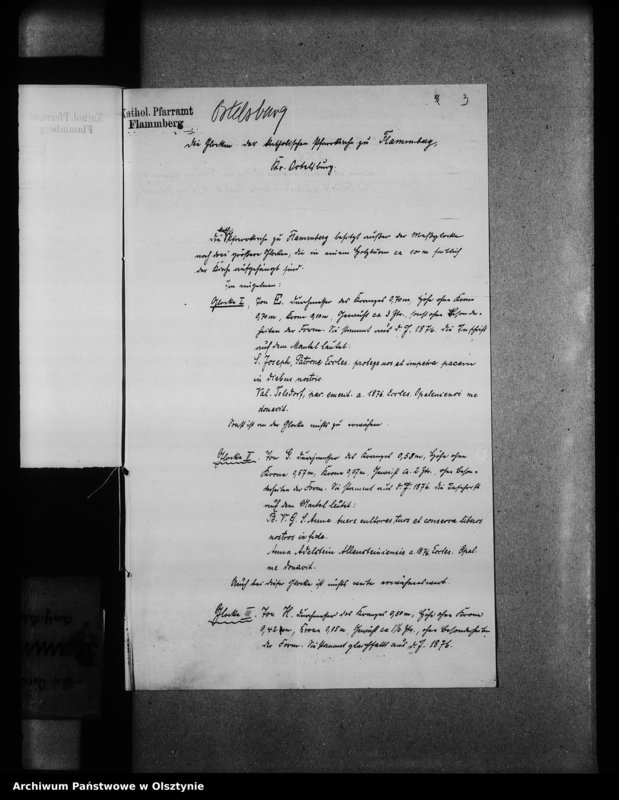 Kathol. Pfarramt
Flammberg
Ortelsburg
3
Die Glocken der katholischen Pfarrkirche zu Flammberg,
Kr. Ortelsburg.
Die Pfarrkirche zu Flammberg besitzt außer der Meßglocke
noch drei größere Glocken, die in einem Holzturm ca 10 m seitlich
der Kirche aufgehängt sind.
Im einzelnen:
Glocke I, Ton E. Durchmesser des Kranzes 0,70 m, Höhe ohne Krone
0,70 m, Krone 0,10 m, Gewicht ca 3 Ztr., sonst ohne Besonder-
heiten der Form. Sie stammt aus d. J. 1876. Die Inschrift
auf dem Mantel lautet:
S. Joseph, Patrone Eccles. protege nos et impetra pacem
in diebus nostris.
Val. Tolsdorf, par. emerit. a. 1876 Eccles. Opaleniensi me
donavit.
Sonst ist an der Glocke nichts zu erwähnen.
Glocke II. Ton G. Durchmesser des Kranzes 0,58 m, Höhe ohne
Krone 0,57 m, Krone 0,07 m. Gewicht ca. 2 Ztr., ohne Beson-
derheiten der Form. Sie stammt aus d. J. 1876. Die Inschrift
auf dem Mantel lautet:
B. V. G. S. Anna tuere cultores tuos et conserva liberos
nostros in fide.
Anna Adelstein Allensteinensis a. 1876 Eccles. Opal.
me donavit.
Auch bei dieser Glocke ist nichts weiter erwähnenswert.
Glocke III. Ton H. Durchmesser des Kranzes 0,50 m, Höhe ohne Krone
0,42 m, Krone 0,05 m. Gewicht ca 1½ Ztr., ohne Besonderheiten
der Form. Sie stammt gleichfalls aus d. J. 1876.
Archiwum Państwowe w Olsztynie